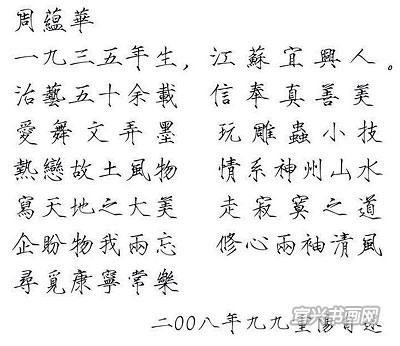 周蘊華
一九三五年生，江蘇宜興人。
治藝五十余載 信奉真善美
愛舞文弄墨 玩雕蟲小技
熱戀故土風物 情系神州山水
寫天地之大美 走寂寞之道
企盼物我兩忘 修心兩袖清風
尋覓康寧常樂
二00八年九九重陽
宜兴书画网